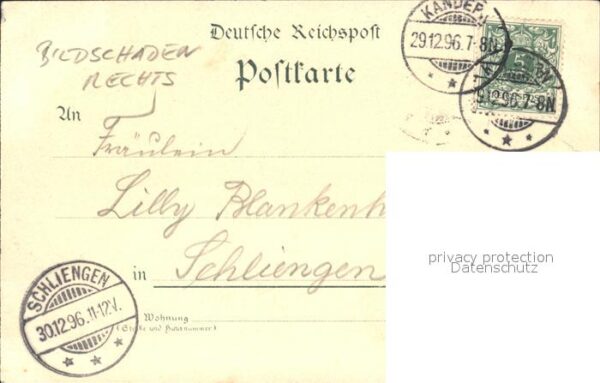 Deutsche Reichspost
Postkarte
BILDSCHADEN
RECHTS
KANDERN
29.12.96.7-8N
9.12.96.7-8N
5
An
Fräulein
Lilly Blankenh
in Schliengen
Wohnung
(Straße und Hausnummer)
SCHLIENGEN
30.12.96.11-12V.
privacy protection
Datenschutz